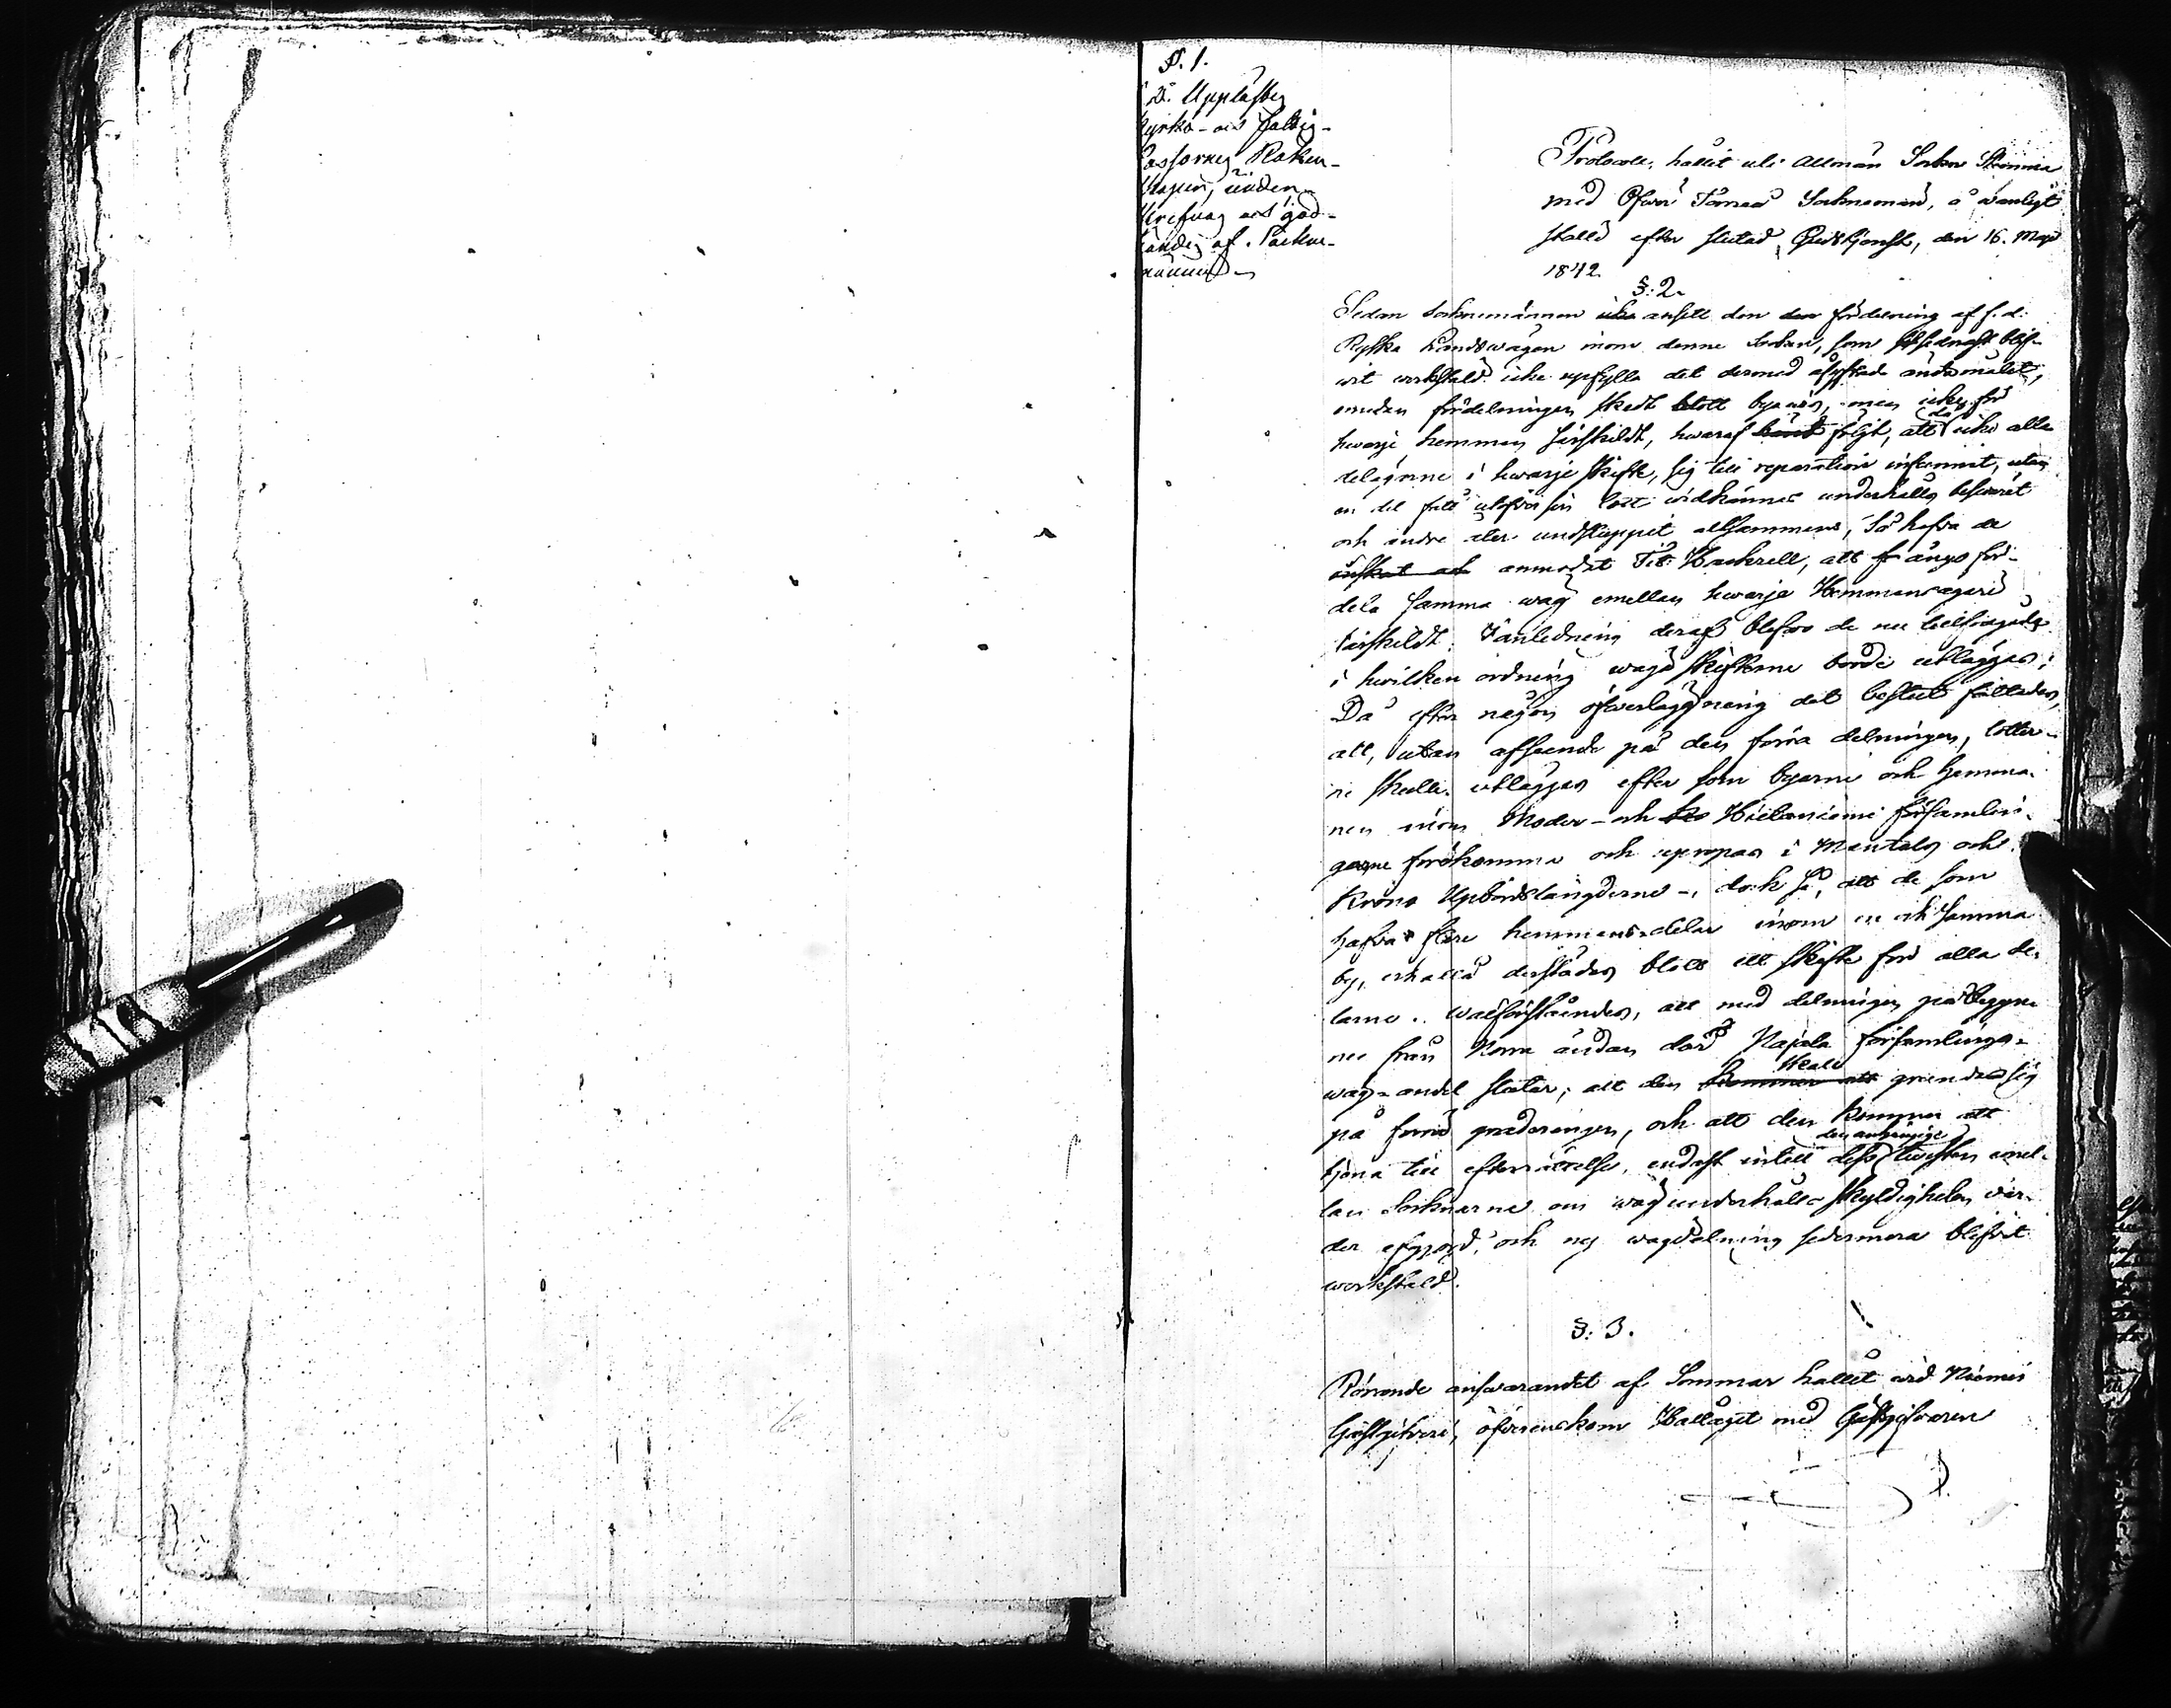 §. 1.
Uppläsktes
Kyrko- och Fattig-
Cassornas Räken-
skaper, under
skrefvos och god-
kändes af Sockne-
männen

Protocoll, hållit uti Allmän Sockne Stämma
med Öfver Torneå Socknemän, å vanligt
ställe efter slutad Gudstjenst, den 16. Maji
1842.
§: 2.
Sedan Socknemännen icke ansett den den fördelning af f. d.
Ryska Landsvägen inom denne Socken, som sednast blif-
vit verkstäld icke upfylla det dermed åsyftade ändamålet,
emedan fördelningen skedt blott byavis, men icke för
hvarje hemman särskildt, hvaraf händt följt, att då icke alla
delägarne i hvarje skifte, sig till reparation infunnit, utan
en del fått utöfver sin lott vidkännas underhålls besväret
och andre åter undsluppit altsammans, Så hafva de
önskat och anmodat Tit. Hackzell, att å nyo för-
dela samma väg emellan hvarje Hemmansägare
särskildt. I anledning deraf blefvo de nu tillfrågade
i hvilken ordning vägskiftena borde utläggas;
Då efter någon öfverläggning det beslut fattades,
att, utan afseende på den förra delningen, lotter-
ne skulle utläggas efter som byarne och hemma-
nen inom Moder- och Hietaniemi församlin-
garne förekomma och upropas i Mantals och
Krono Upbördslängderne -, dock så, att de som
hafva flere hemmansdelar inom en och samma
by, erhålla derstädes blott ett skifte för alla de-
larne. Wälförståendes, att med delningen påbegyn-
nes från Norra ändan der Pajala församlings
väg-andel slutar; att den kommer att skall grunda sig
på förra graderingen, och att den kommer att
tjena till efterrättelse, endast intill dess den anhängige tvisten emel-
lan Socknarne om vägunderhålls-skyldigheten vär-
der afgjord, och ny vägdelning sedermera blifvit
verkstäld.
§: 3.
Rörande ansvarandet af Sommar hållet vid Niemis
Gästgifveri, öfverenskom Hållaget med Gästgifvaren